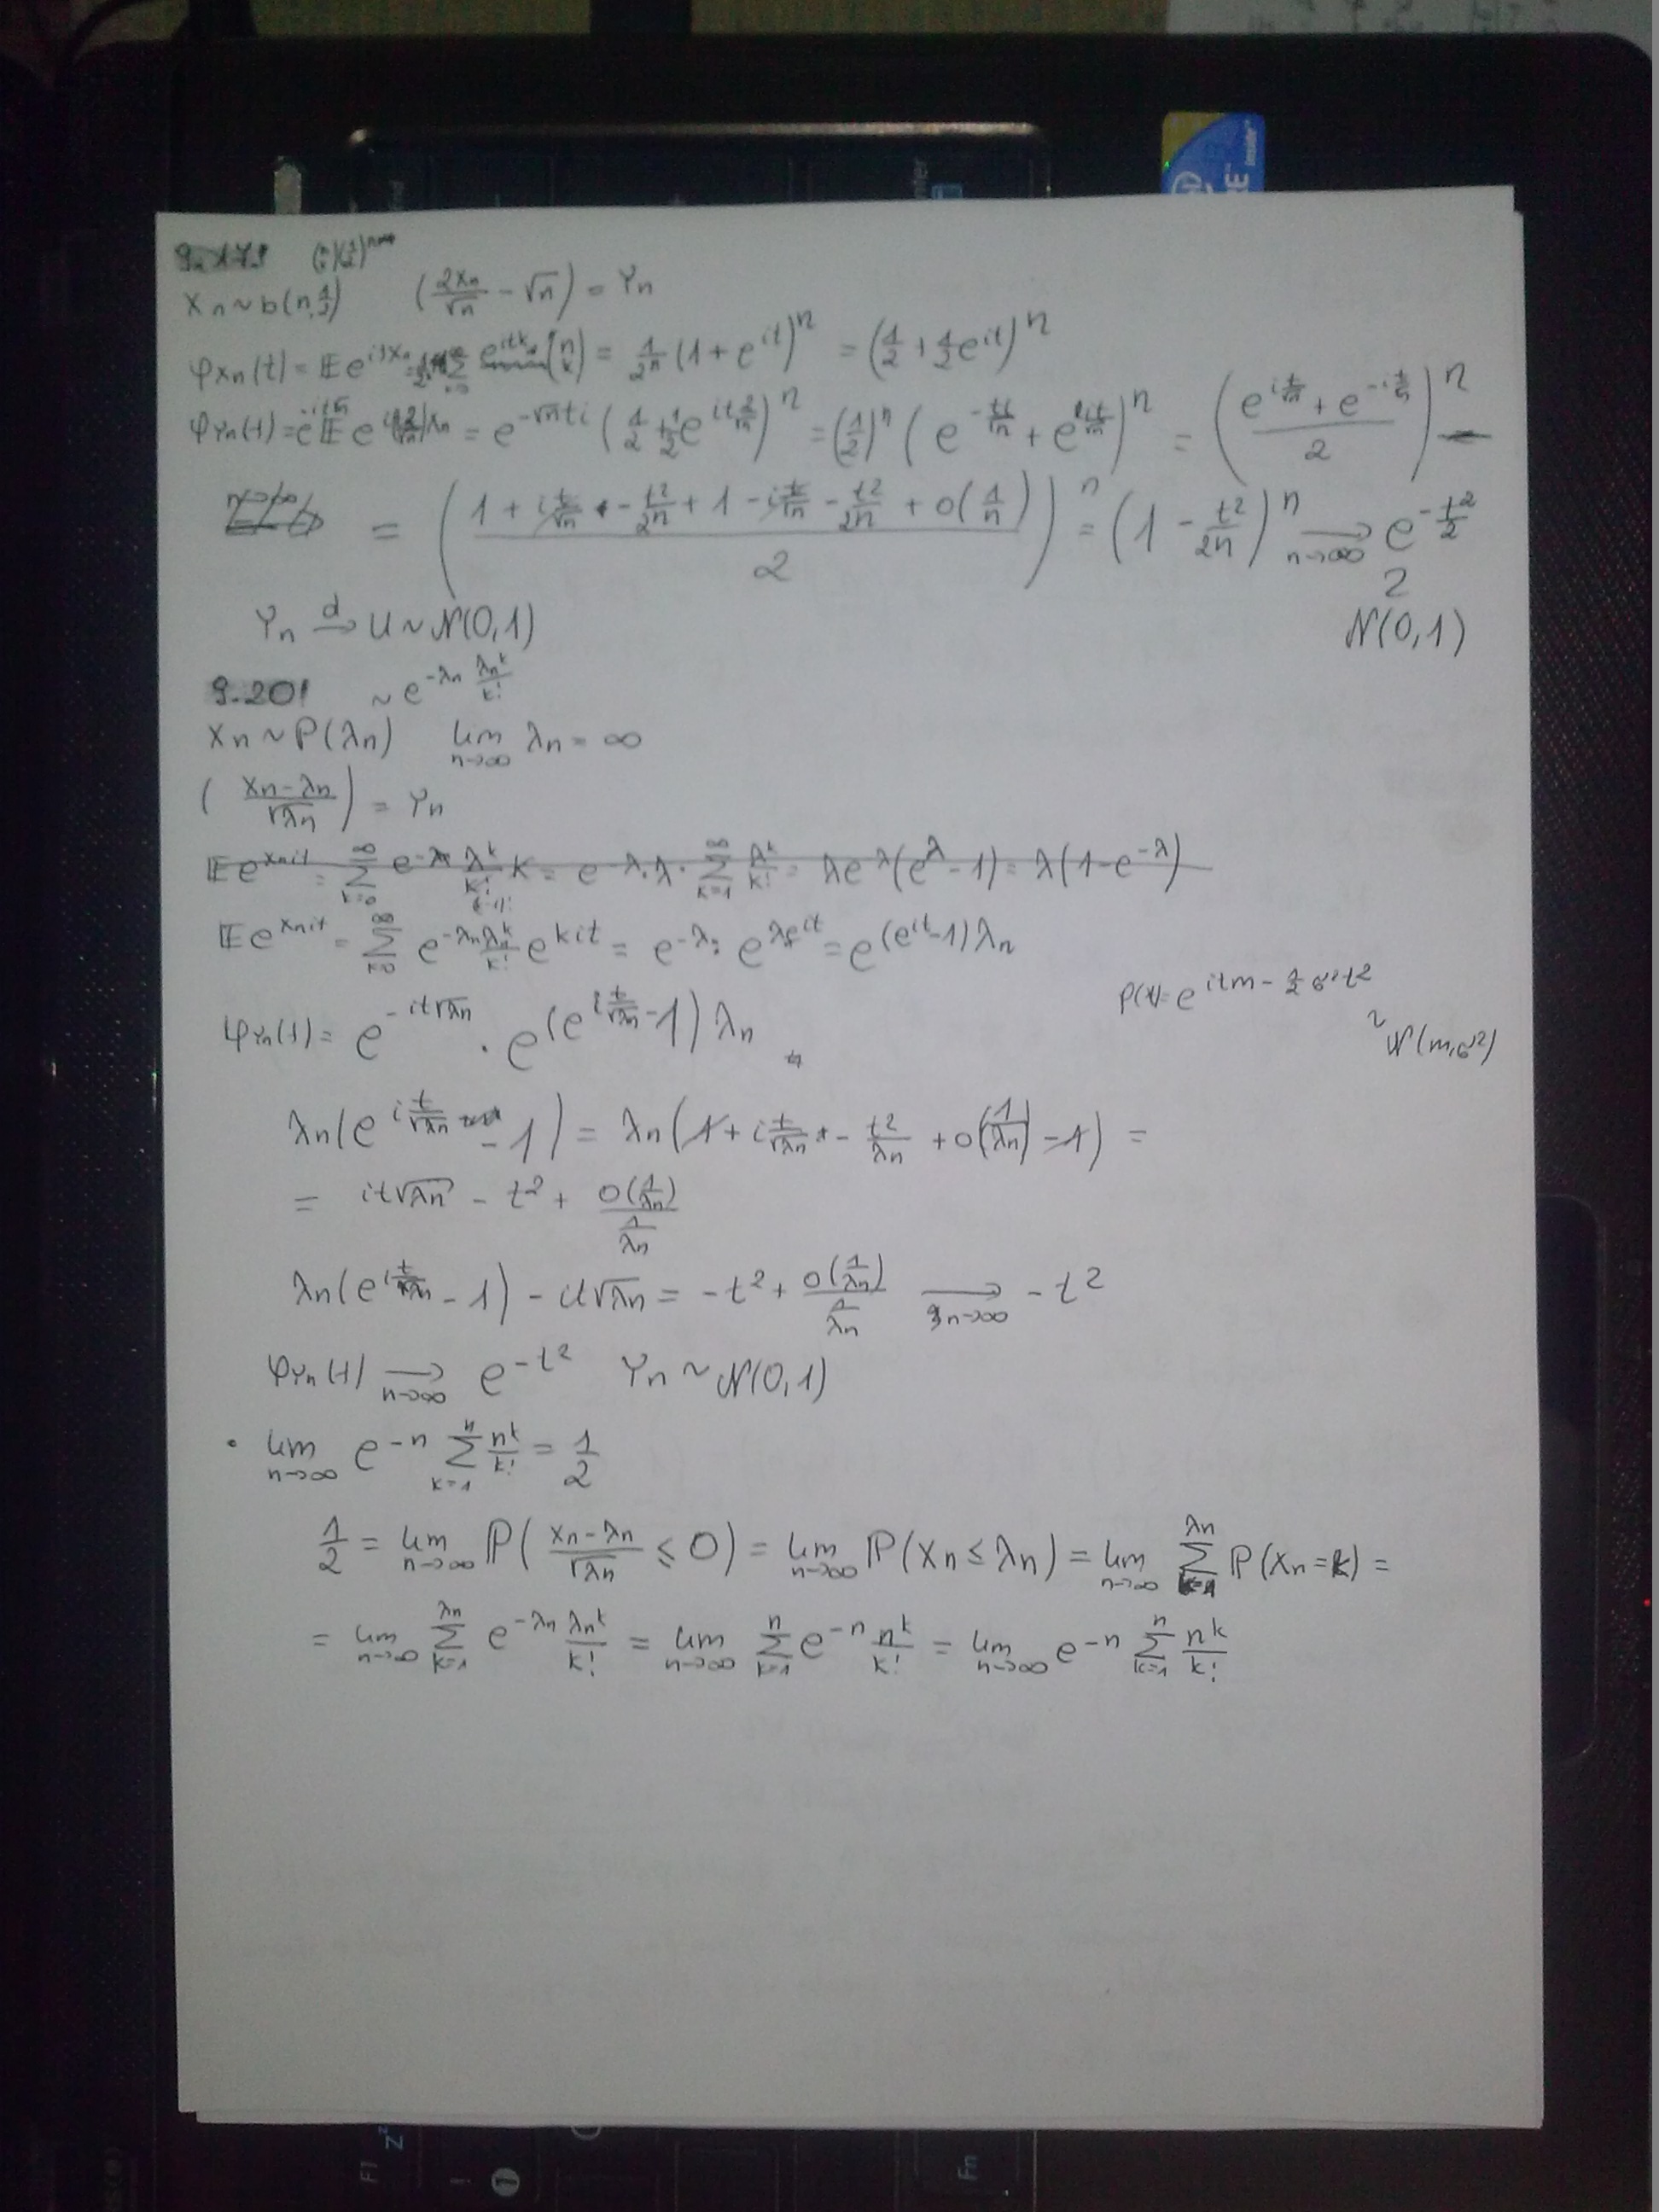 X_n ~ b(n, 1/2) (2X_n/√n − √n) = Y_n
φ_{X_n}(t) = 𝔼 e^{itX_n} = 1/2^n (1 + e^{it})^n = (1/2 + 1/2 e^{it})^n
φ_{Y_n}(t) = e^{-it√n} 𝔼 e^{i(t2/√n)X_n} = e^{-√n ti} (1/2 + 1/2 e^{it 2/√n})^n = (1/2)^n (e^{-ti/√n} + e^{it/√n})^n = ((e^{i t/√n} + e^{-i t/√n})/2)^n
= ((1 + i t/√n − t²/2n + 1 − i t/√n − t²/2n + o(1/n))/2)^n = (1 − t²/2n)^n →_{n→∞} e^{-t²/2}
2
Y_n →^d U ~ N(0,1) N(0,1)
9.201 ~ e^{-λ_n} λ_n^k/k!
X_n ~ P(λ_n) lim_{n→∞} λ_n = ∞
((X_n − λ_n)/√λ_n) = Y_n
𝔼 e^{X_n it} = Σ_{k=0}^∞ e^{-λ} λ^k/k! k = e^{-λ}·λ·Σ_{k=1}^∞ λ^k/k! = λe^{-λ}(e^λ − 1) = λ(1 − e^{-λ})
𝔼 e^{X_n it} = Σ_{k=0}^∞ e^{-λ_n} λ_n^k/k! e^{kit} = e^{-λ} · e^{λe^{it}} = e^{(e^{it}−1)λ_n}
φ(t) = e^{itm − 1/2 σ²t²}
φ_{Y_n}(t) = e^{-it√λ_n} · e^{(e^{i t/√λ_n} − 1)λ_n}
~ N(m, σ²)
λ_n(e^{i t/√λ_n} − 1) = λ_n(1 + i t/√λ_n − t²/λ_n + o(1/λ_n) − 1) =
= it√λ_n − t² + o(1/λ_n)/(1/λ_n)
λ_n(e^{i t/√λ_n} − 1) − it√λ_n = −t² + o(1/λ_n)/(1/λ_n) →_{n→∞} −t²
φ_{Y_n}(t) →_{n→∞} e^{-t²} Y_n ~ N(0,1)
• lim_{n→∞} e^{-n} Σ_{k=1}^n n^k/k! = 1/2
1/2 = lim_{n→∞} ℙ((X_n − λ_n)/√λ_n ≤ 0) = lim_{n→∞} ℙ(X_n ≤ λ_n) = lim_{n→∞} Σ_{k=1}^{λ_n} ℙ(X_n = k) =
= lim_{n→∞} Σ_{k=1}^{λ_n} e^{-λ_n} λ_n^k/k! = lim_{n→∞} Σ_{k=1}^n e^{-n} n^k/k! = lim_{n→∞} e^{-n} Σ_{k=1}^n n^k/k!
F1
Fn